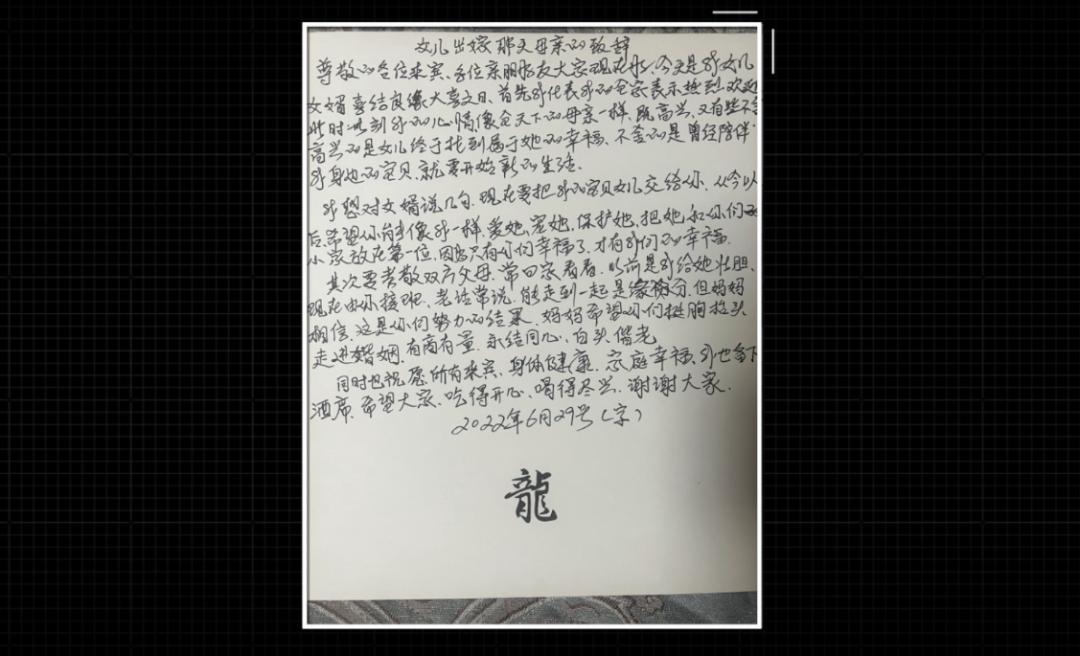 女儿出嫁那天母亲的致辞
尊敬的各位来宾、各位亲朋好友大家现在好、今天是我女儿
女婿喜结良缘大喜之日、首先我代表我的全家表示热烈欢迎
此时此刻我的心情像全天下的母亲一样、既高兴、又有些不舍
高兴的是女儿终于找到属于她的幸福、不舍的是曾经陪伴
我身边的宝贝、就要开始新的生活.
我想对女婿说几句、现在要把我的宝贝女儿交给你、从今以
后希望你能像我一样、爱她、宠她、保护她、把她和你们的
小家放在第一位、因为只有你们幸福了、才有我们的幸福.
其次要孝敬双方父母、常回家看看、以前是我给她壮胆、
现在由你接班、老话常说、能走到一起是缘份、但妈妈
相信、这是你们努力的结果、妈妈希望你们挺胸抬头
走进婚姻、有商有量、永结同心、白头偕老
同时也祝愿所有来宾、身体健康、家庭幸福、我也备下
酒席、希望大家、吃得开心、喝得尽兴、谢谢大家.
2022年6月29号(字)
龍